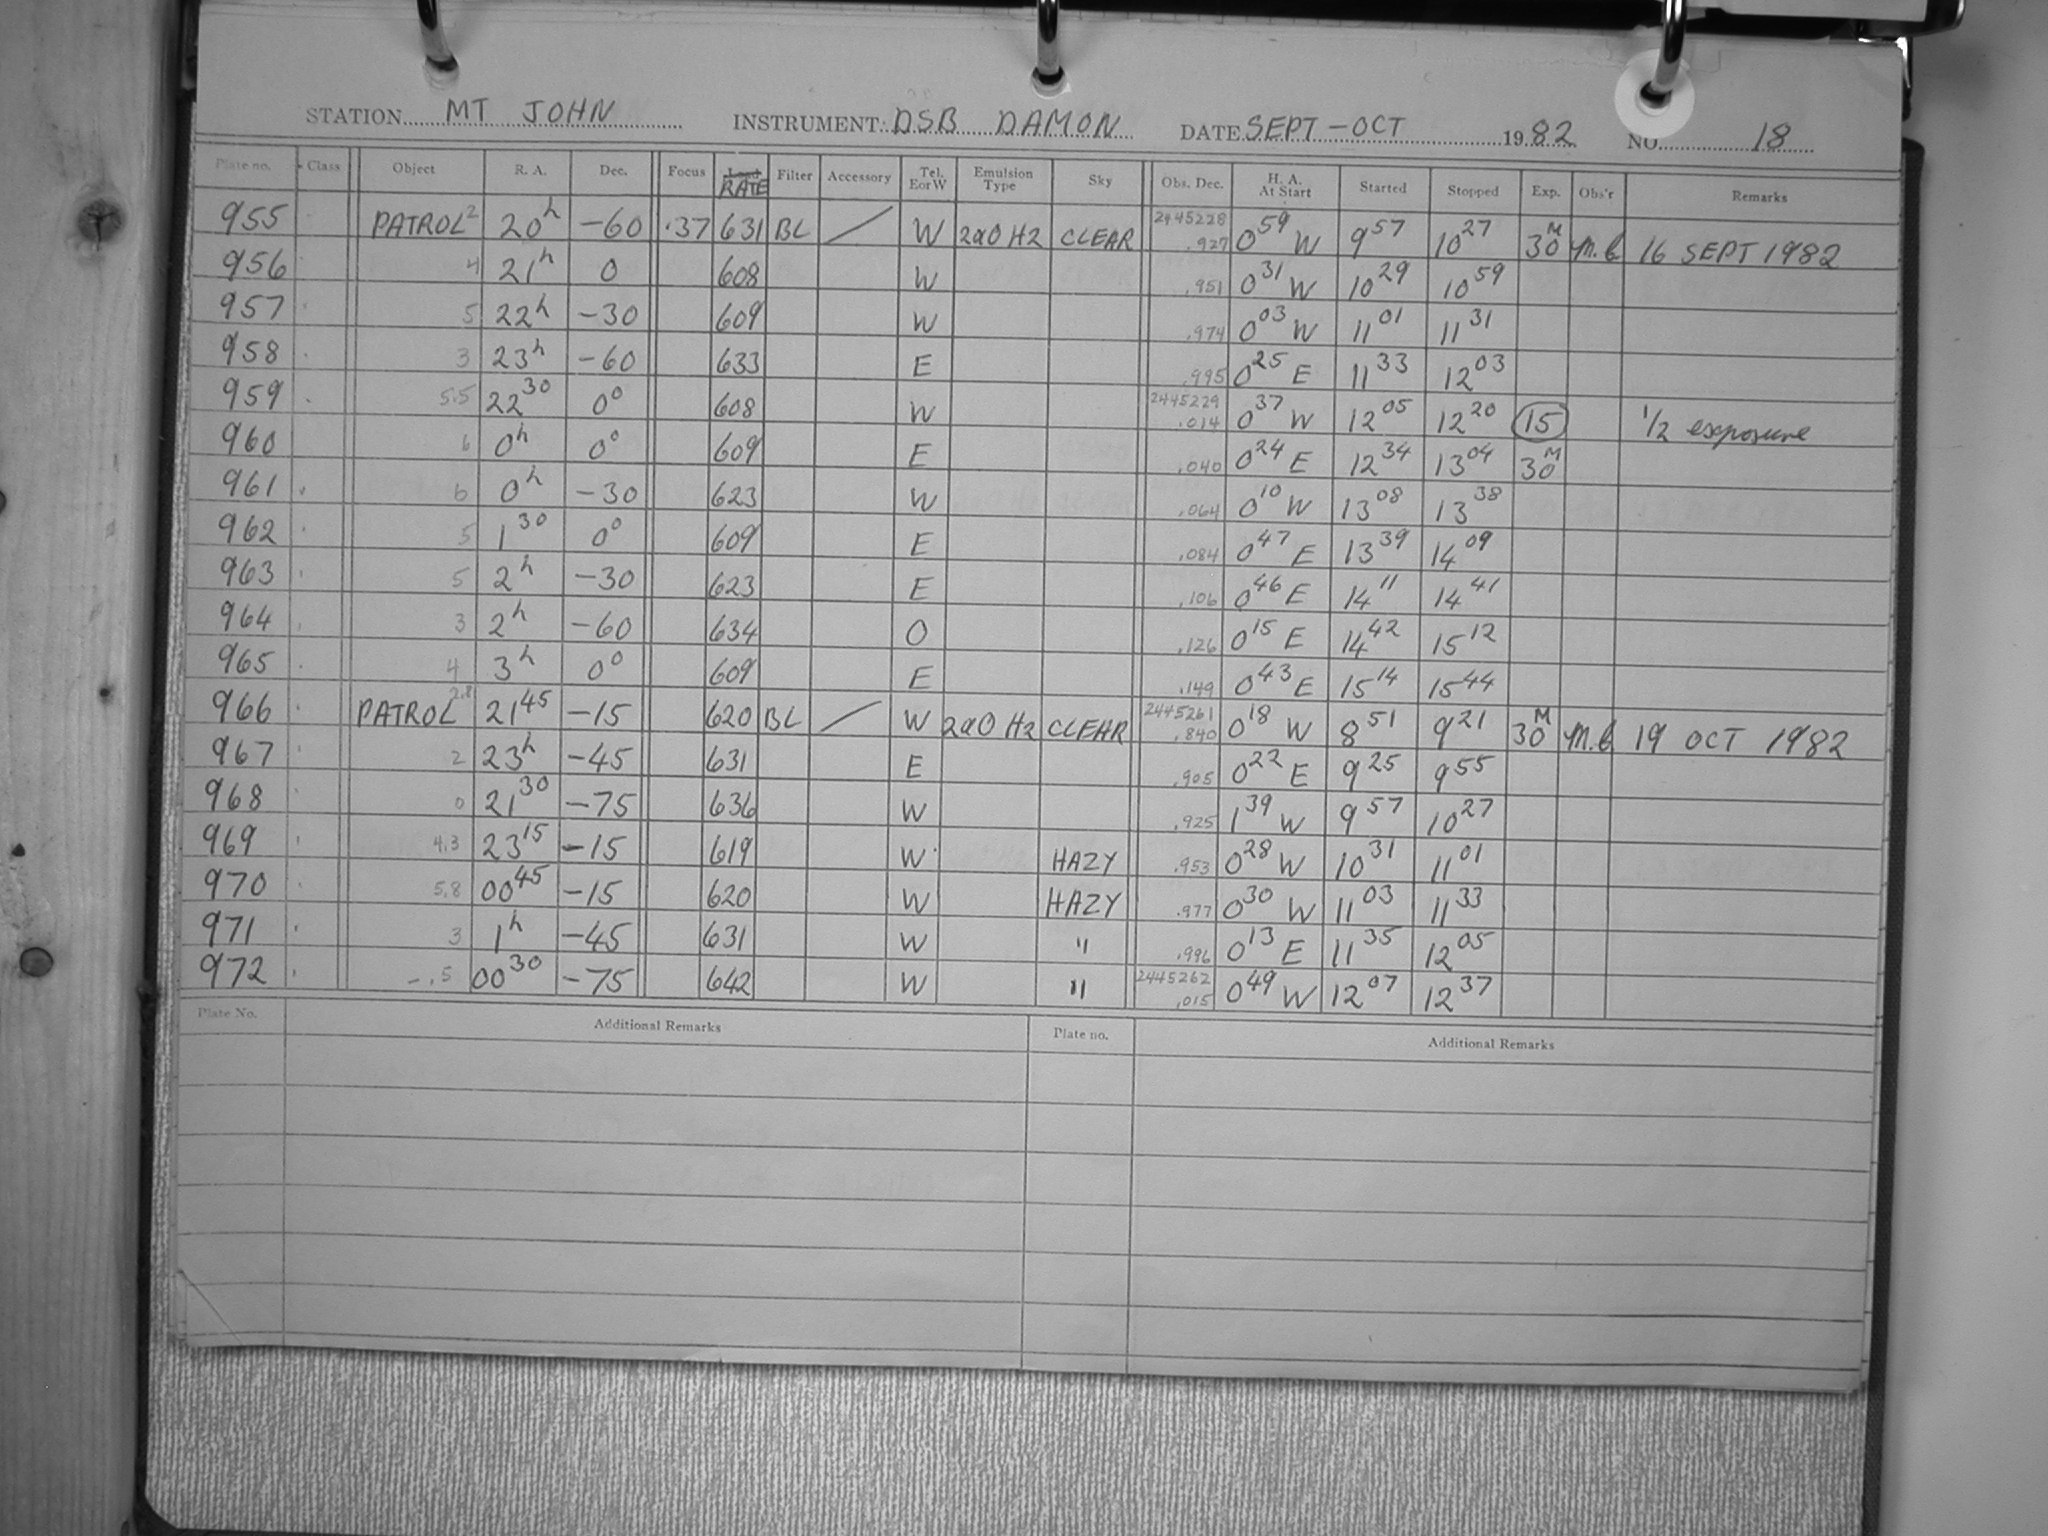 STATION MT JOHN INSTRUMENT: DSB DAMON DATE SEPT-OCT 1982 NO. 18
Plate no. Class Object R. A. Dec. Focus Load RATE Filter Accessory Tel. E or W Emulsion Type Sky Obs. Dec. H. A. At Start Started Stopped Exp. Obs'r Remarks
955 PATROL 2 20h -60 .37 631 BL / W 2aO H2 CLEAR 2445228 .927 0 59 W 9 57 10 27 30M M.C 16 SEPT 1982
956 4 21h 0 608 W .951 0 31 W 10 29 10 59
957 5 22h -30 609 W .974 0 03 W 11 01 11 31
958 3 23h -60 633 E .995 0 25 E 11 33 12 03
959 5.5 22 30 0° 608 W 2445229 .014 0 37 W 12 05 12 20 15 1/2 exposure
960 6 0h 0° 609 E .040 0 24 E 12 34 13 04 30M
961 6 0h -30 623 W .064 0 10 W 13 08 13 38
962 5 1 30 0° 609 E .084 0 47 E 13 39 14 09
963 5 2h -30 623 E .106 0 46 E 14 11 14 41
964 3 2h -60 634 O .126 0 15 E 14 42 15 12
965 4 3h 0° 609 E .149 0 43 E 15 14 15 44
966 PATROL 2.8 21 45 -15 620 BL / W 2aO H2 CLEAR 2445261 .840 0 18 W 8 51 9 21 30M M.C 19 OCT 1982
967 2 23h -45 631 E .905 0 22 E 9 25 9 55
968 0 21 30 -75 636 W .925 1 39 W 9 57 10 27
969 4.3 23 15 -15 619 W HAZY .953 0 28 W 10 31 11 01
970 5.8 00 45 -15 620 W HAZY .977 0 30 W 11 03 11 33
971 3 1h -45 631 W " .996 0 13 E 11 35 12 05
972 -.5 00 30 -75 642 W " 2445262 .015 0 49 W 12 07 12 37
Plate No. Additional Remarks Plate no. Additional Remarks